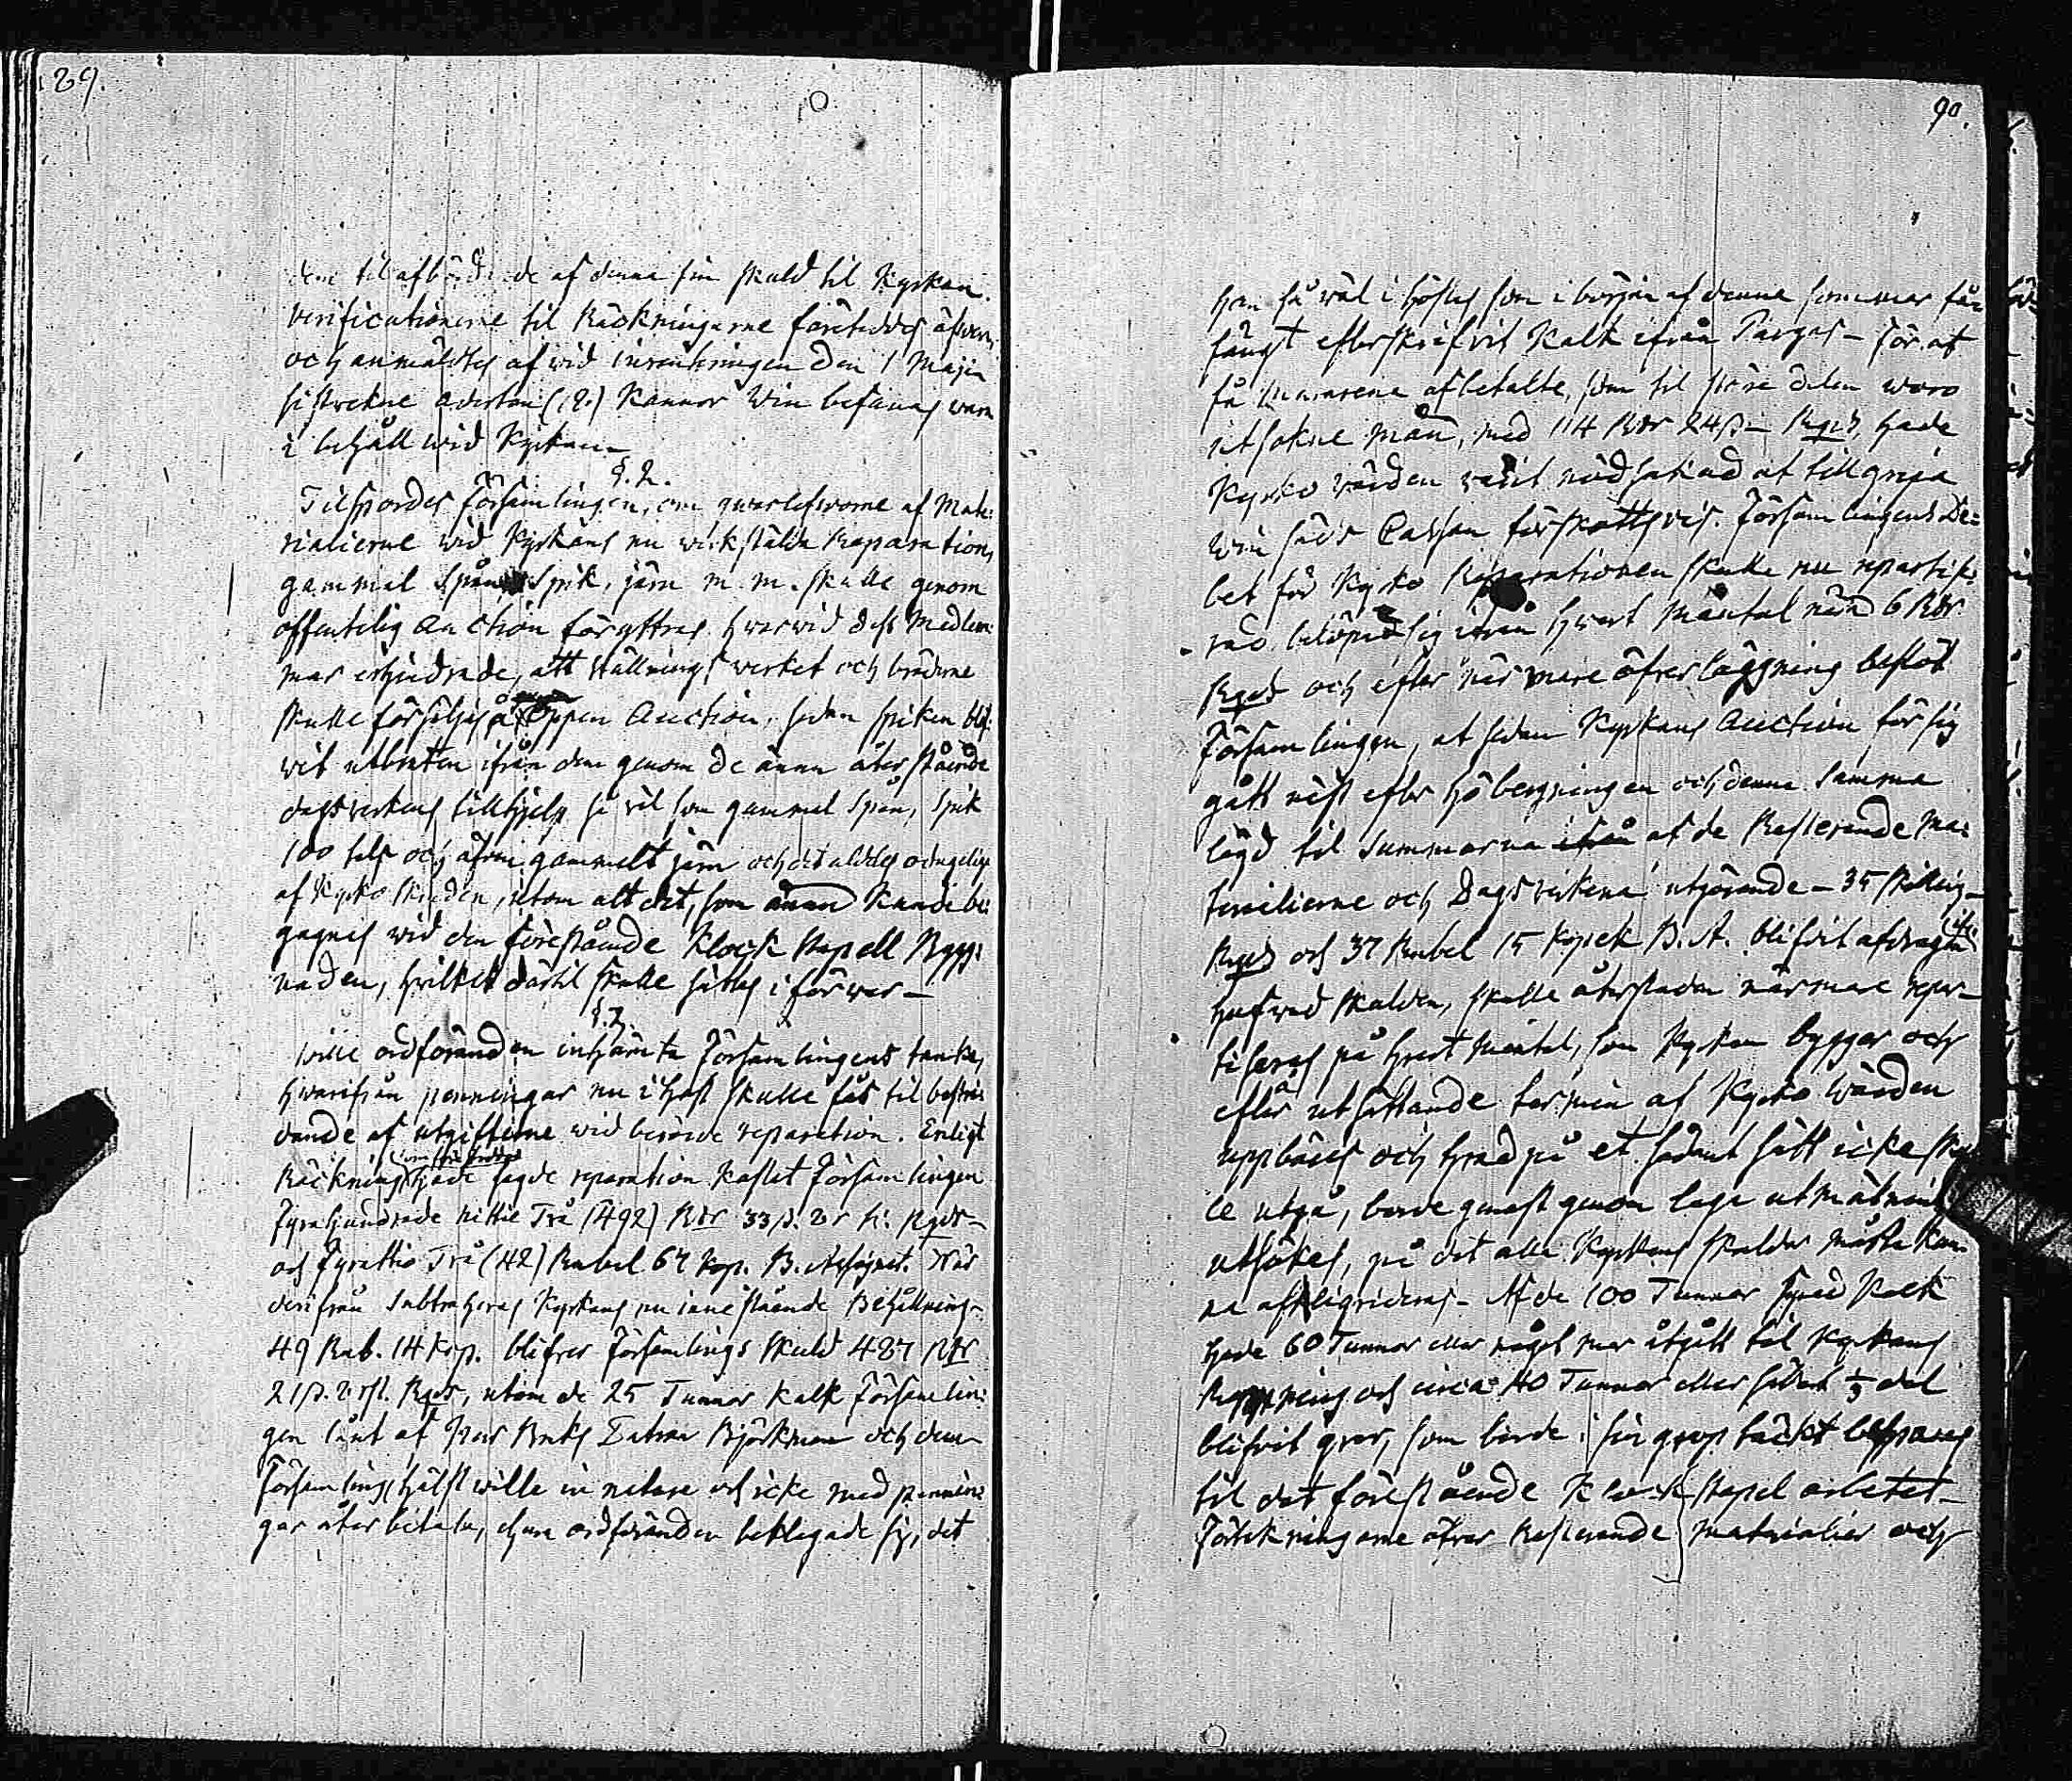 89.
af denna sin skuld til Kyrkan.
Verificationerne til Räckningarne företeddes äfven,
och anmältes af wid inräkningen den 1 Maji
sistvekne aderton (18.) Kannor Win befanns vara
i behåll wid Kyrkan
§. 2.
Tilspordes Församlingen, om qwarlefworne af Mate-
rialierne wid Kyrkans nu wirkstälda Reparation,
gammal Spån Spik, järn m. m. skulle genom
offentelig Auction föryttras. hwarwid dess Medlem-
mar erhindrade, att ställnings werket och bräderne
skulle försäljas å öppen Auction, sedan spiken blif-
vit utbruten ifrån dem genom de ännu återstående
dagsverkens tillhjelp så väl som gammal Spån, Spik
100 tals och äfven gammalt järn och det aldeles odugelige
af Kyrko skruden, utom alt det, som ännu kunde be-
gagnas wid den förestående Klock stapell Bygg-
naden, hvilket därtil skulle sättas i förwar –
§. 3.
Wille ordföranden inhämta Församlingens tanka,
hwarifrån penningar nu i hast skulle fås til bestri-
dande af utgifterne wid berörde reparation. Enligt
Räckning hade sagde reparation kostat Församlingen
Fyrahundrade Nittie Två (492) Rdr 33 s. 2 r st. Rgds –
och Fyrattio Två (42) Rubel 67 Kop. B. Assignat. När
derifrån Subtraheras Kyrkans nu innestående Behållning –
49 Rub. 14 Kop. blifver Församlings skuld 487 Rdr
21 s. 2 rst. Rgds, utom de 25 Tunnor Kalk Församlin-
gen lånt af Herr Bruks Patron Björkman och dem
Församling hälst wille in natura och icke med pennin-
gar återbetala, ehuru ordföranden beklagade sig, det
90.
han så wäl i höstas som i början af denna sommar få-
fängt efterskrifvit Kalk ifrån Pargas – För at
få Murarena afbetalte, som til större delen woro
utsokne män, med 114 Rdr 24 s – Rgds, hade
Kyrko wärden varit nödsakad at tillgripa
Win säds Cassan förskottsvis. Församlingens De-
bet för Kyrko Reparationen skulle nu repartise-
rad belöpa sig ifrån hwart Mantal nära 6 Rdr
Rgds och efter närmare öfverläggning beslöt
Församlingen, at sedan Kyrkans Auction för sig
gått näst efter höbergningen och denna Summa
lagd til Summorna af de Resterande Ma-
terialierne och Dagsverkena utgörande – 35 skilling –
Rgds och 37 Rubel 15 Kopek B. A. blifvit afdragen
hufwud skulden, skulle återstoden närmare repar-
tiseras på hvart Mantal, som Kyrkan bygger och
efter utsättande termin af Kyrko wärden
uppbäras och hwad på et sådant sätt icke skul-
le utgå, borde genast genom laga utmätning
utsökas, på det alla Kyrkans skulder måtte kun-
na afliqvideras – Af de 100 Tunnor Kalk
hade 60 Tunnor eller något mer åtgått til Kyrkans
Rappning och circa 40 Tunnor eller sådant 1/3 del
blifvit qvar, som borde i sin grop täckt bespares
til det förestående Klock stapel arbetet –
Förtekningarne öfver Resterande materialier och